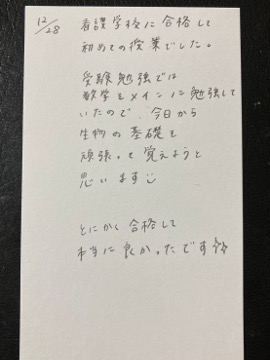 12/28
看護学校に合格して
初めての授業でした。
受験勉強では
数学をメインに勉強して
いたので、今日から
生物の基礎を
頑張って覚えようと
思います
とにかく合格して
本当に良かったです☆☆